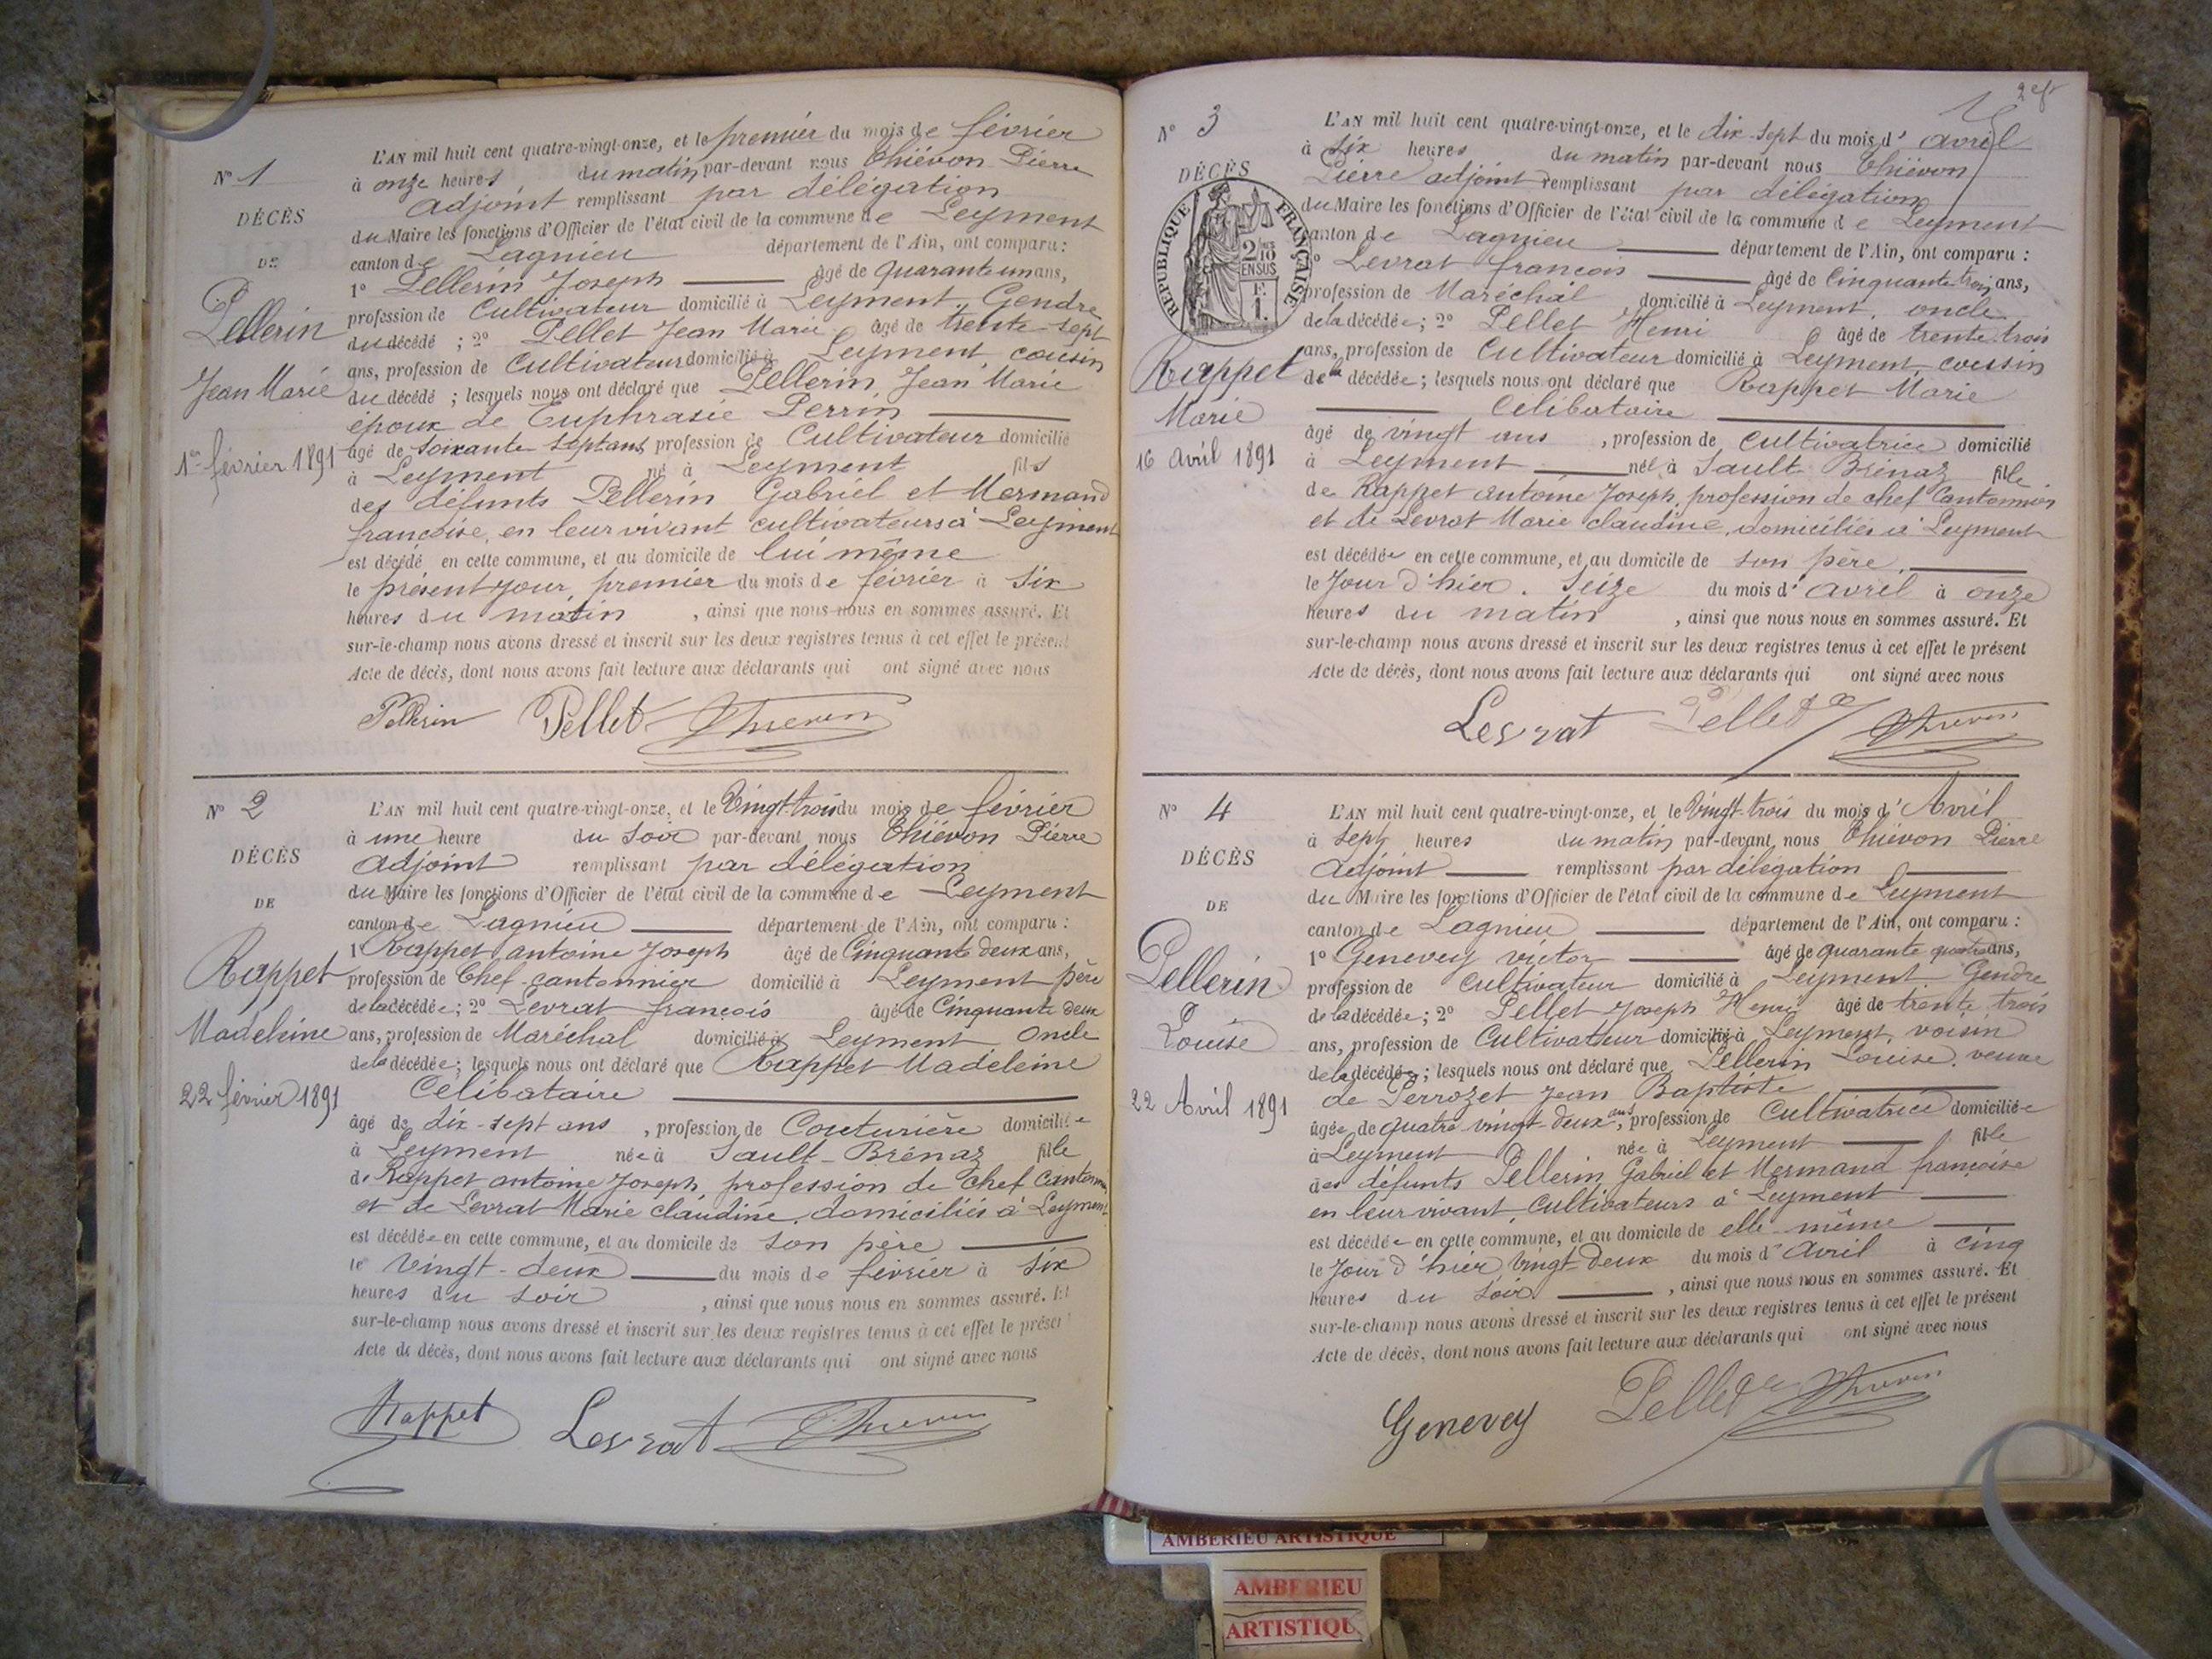 N° 1
DÉCÈS
DE
Pellerin
Jean Marie
1er février 1891
L'AN mil huit cent quatre-vingt-onze, et le premier du mois de février
à onze heures du matin par-devant nous Thiévon Pierre
adjoint remplissant par délégation
du Maire les fonctions d'Officier de l'état civil de la commune de Leyment
canton de Lagnieu département de l'Ain, ont comparu :
1° Pellerin Joseph âgé de quarante un ans,
profession de Cultivateur domicilié à Leyment, Gendre
du décédé ; 2° Pellet Jean Marie âgé de trente-sept
ans, profession de Cultivateur domicilié à Leyment, cousin
du décédé ; lesquels nous ont déclaré que Pellerin, Jean Marie
époux de Euphrasie Perrin
âgé de soixante septans, profession de Cultivateur domicilié
à Leyment né à Leyment fils
des défunts Pellerin Gabriel et Mermand
françoise, en leur vivant cultivateurs à Leyment
est décédé en cette commune, et au domicile de lui même
le présent jour, premier du mois de février à six
heures du matin , ainsi que nous nous en sommes assuré. Et
sur-le-champ nous avons dressé et inscrit sur les deux registres tenus à cet effet le présent
Acte de décès, dont nous avons fait lecture aux déclarants qui ont signé avec nous
Pellerin Pellet Thievon
N° 2
DÉCÈS
DE
Rappet
Madeleine
22 février 1891
L'AN mil huit cent quatre-vingt-onze, et le Vingt-trois du mois de février
à une heure du soir par-devant nous Thiévon Pierre
adjoint remplissant par délégation
du Maire les fonctions d'Officier de l'état civil de la commune de Leyment
canton de Lagnieu département de l'Ain, ont comparu :
1° Rappet antoine Joseph âgé de Cinquante deux ans,
profession de Chef-cantonnier domicilié à Leyment père
de la décédée ; 2° Levrat françois âgé de Cinquante deux
ans, profession de Maréchal domicilié à Leyment oncle
de la décédée ; lesquels nous ont déclaré que Rappet Madeleine
Célibataire
âgé de dix-sept ans , profession de Couturière domiciliée
à Leyment née à Sault-Brénaz fille
de Rappet antoine Joseph, profession de chef Cantonnier
et de Levrat Marie claudine, domiciliés à Leyment
est décédée en cette commune, et au domicile de son père
le Vingt-deux du mois de février à six
heures du soir , ainsi que nous nous en sommes assuré. Et
sur-le-champ nous avons dressé et inscrit sur les deux registres tenus à cet effet le présent
Acte de décès, dont nous avons fait lecture aux déclarants qui ont signé avec nous
Rappet Levrat Thievon
N° 3
DÉCÈS
RÉPUBLIQUE FRANÇAISE
2/10
EN SUS
F.
1.
Rappet
Marie
16 avril 1891
L'AN mil huit cent quatre-vingt-onze, et le dix-sept du mois d'avril
à six heures du matin par-devant nous Thiévon
Pierre adjoint remplissant par délégation
du Maire les fonctions d'Officier de l'état civil de la commune de Leyment
canton de Lagnieu département de l'Ain, ont comparu :
1° Levrat françois âgé de Cinquante trois ans,
profession de Maréchal domicilié à Leyment, oncle
de la décédée ; 2° Pellet Henri âgé de trente-trois
ans, profession de Cultivateur domicilié à Leyment, cousin
de la décédée ; lesquels nous ont déclaré que Rappet Marie
Célibataire
âgé de vingt ans , profession de cultivatrice domicilié
à Leyment née à Sault-Brénaz fille
de Rappet antoine Joseph, profession de chef Cantonnier
et de Levrat Marie claudine, domiciliés à Leyment
est décédée en cette commune, et au domicile de son père,
le Jour d'hier, seize du mois d'avril à onze
heures du matin , ainsi que nous nous en sommes assuré. Et
sur-le-champ nous avons dressé et inscrit sur les deux registres tenus à cet effet le présent
Acte de décès, dont nous avons fait lecture aux déclarants qui ont signé avec nous
Levrat Pellet Thievon
N° 4
DÉCÈS
DE
Pellerin
Louise
22 Avril 1891
L'AN mil huit cent quatre-vingt-onze, et le Vingt-trois du mois d'Avril
à sept heures du matin par-devant nous Thiévon Pierre
adjoint remplissant par délégation
du Maire les fonctions d'Officier de l'état civil de la commune de Leyment
canton de Lagnieu département de l'Ain, ont comparu :
1° Genevey victor âgé de quarante quatre ans,
profession de Cultivateur domicilié à Leyment Gendre
de la décédée ; 2° Pellet Joseph Henri âgé de trente trois
ans, profession de Cultivateur domicilié à Leyment, voisin
de la décédée ; lesquels nous ont déclaré que Pellerin Louise, veuve
de Perrozet Jean Baptiste
âgée de quatre vingt-deux ans, profession de Cultivatrice domiciliée
à Leyment née à Leyment fille
des défunts Pellerin Gabriel et Mermand françoise
en leur vivant, Cultivateurs à Leyment
est décédée en cette commune, et au domicile de elle-même
le Jour d'hier, Vingt-deux du mois d'avril à cinq
heures du soir , ainsi que nous nous en sommes assuré. Et
sur-le-champ nous avons dressé et inscrit sur les deux registres tenus à cet effet le présent
Acte de décès, dont nous avons fait lecture aux déclarants qui ont signé avec nous
Genevey Pellet Thievon
AMBERIEU ARTISTIQUE
AMBERIEU
ARTISTIQU